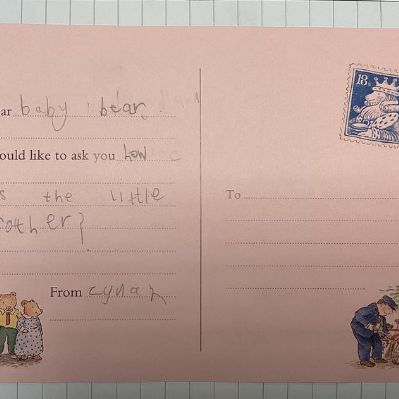 ar baby bear
ould like to ask you how
s the little
other?
From
To
18